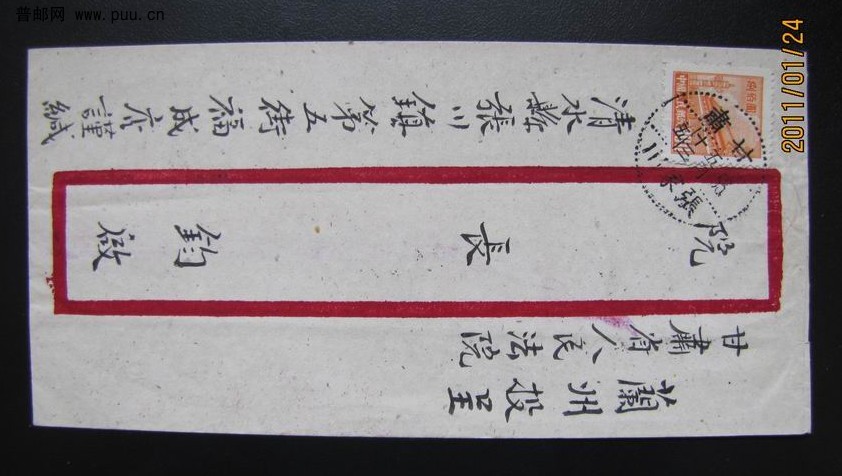 普邮网 www.puu.cn
2011/01/24
蘭州投呈
甘肅省人民法院
院長鈞啟
清水縣張川鎮第五街福成 謹緘
甘肅
張家川